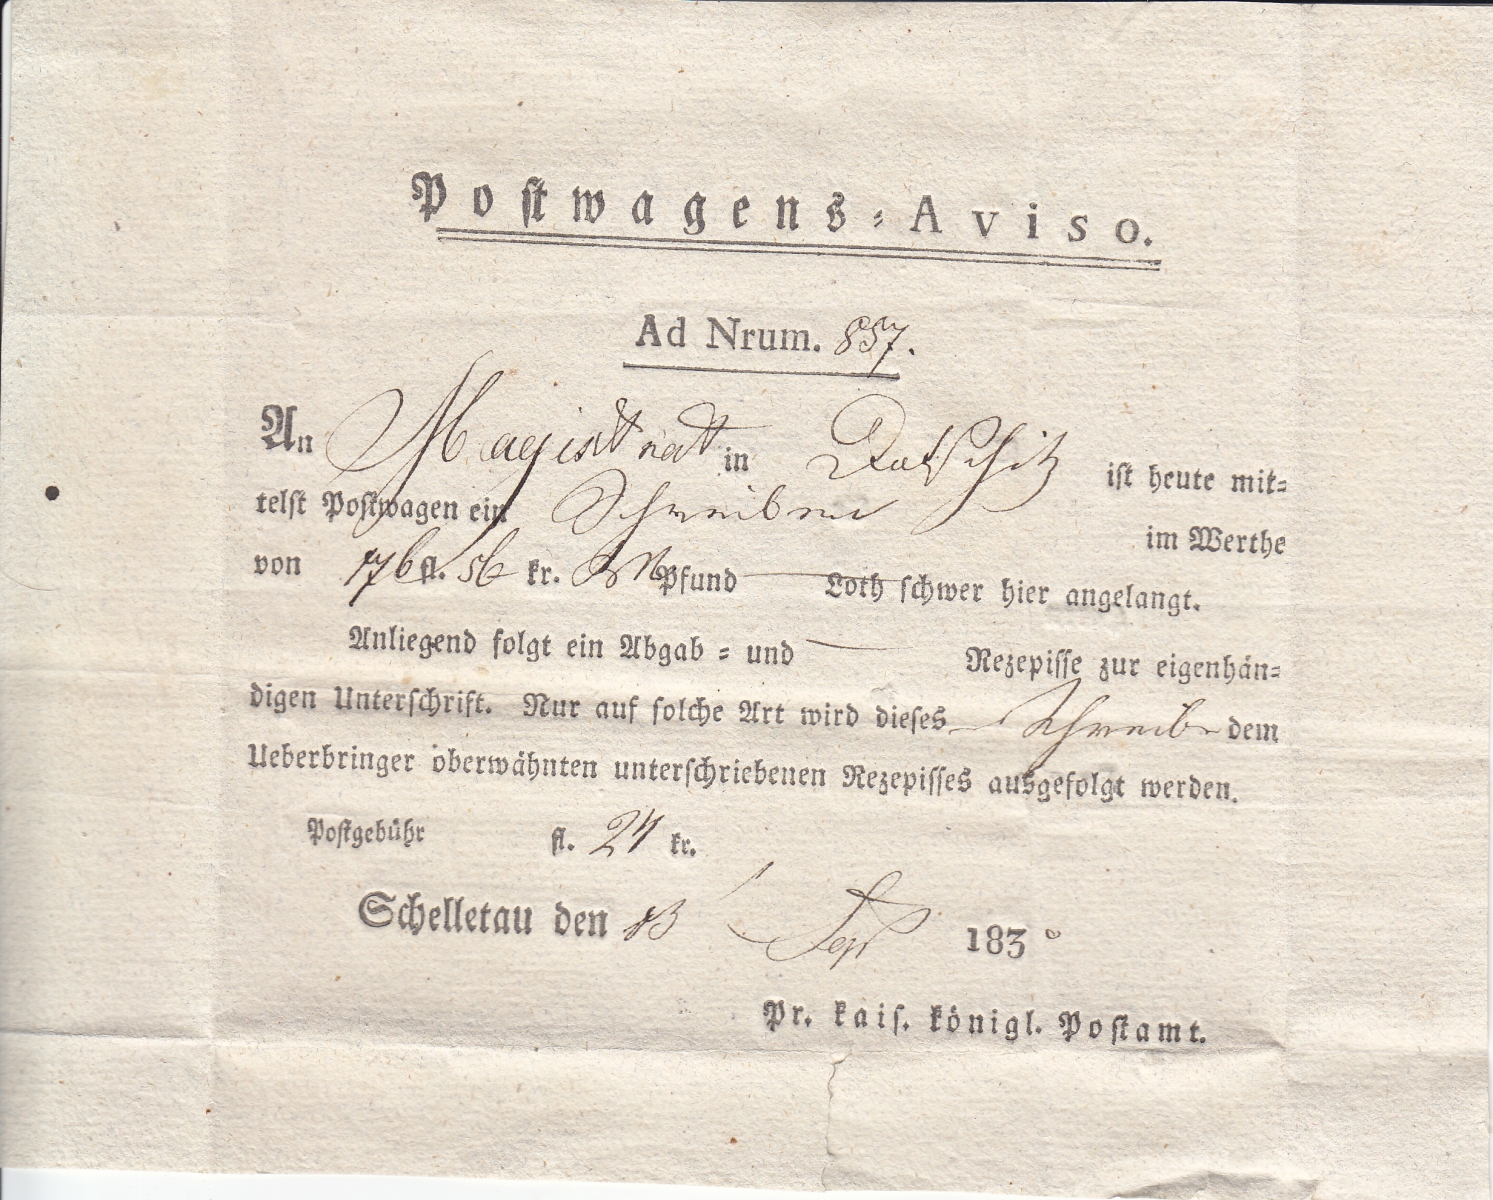 Postwagens-Aviso.
Ad Nrum. 857.
An Magistrat in Datschitz ist heute mit-
telst Postwagen ein Schreiben im Werthe
von 176 fl. 56 kr. Pfund — Loth schwer hier angelangt.
Anliegend folgt ein Abgab- und — Rezepisse zur eigenhän-
digen Unterschrift. Nur auf solche Art wird dieses Schreibe dem
Ueberbringer oberwähnten unterschriebenen Rezepisses ausgefolgt werden.
Postgebühr fl. 24 kr.
Schelletau den 13 Sept 1830
Pr. kais. königl. Postamt.